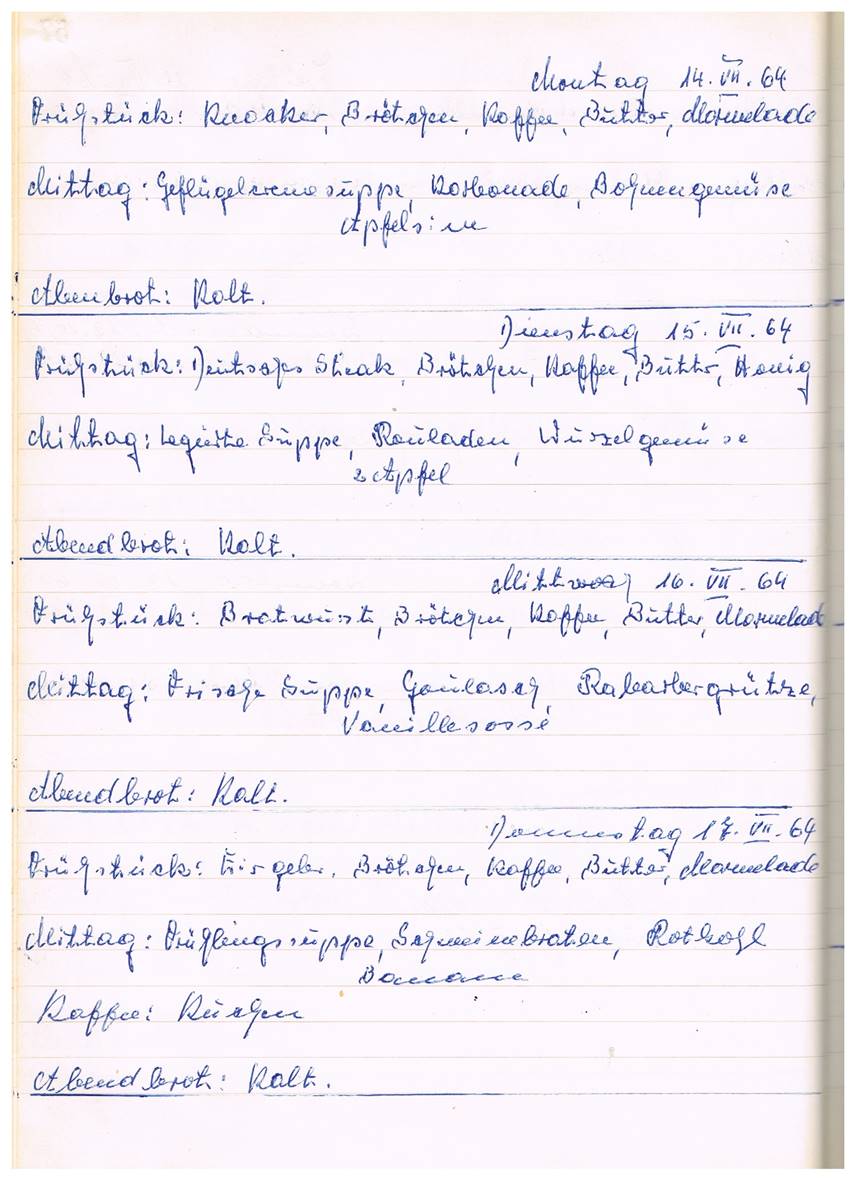 Montag 14. VII. 64
Frühstück: Knacker, Brötchen, Kaffee, Butter, Marmelade
Mittag: Geflügelcremesuppe, Karbonade, Bohnengemüse
Apfelsine
Abenbrot: Kalt.
Dienstag 15. VII. 64
Frühstück: Deutsches Steak, Brötchen, Kaffee, Butter, Honig
Mittag: Legierte Suppe, Rouladen, Wurzelgemüse
2 Apfel
Abendbrot: Kalt.
Mittwoch 16. VII. 64
Frühstück: Bratwurst, Brötchen, Kaffee, Butter, Marmelade
Mittag: Frische Suppe, Goulasch, Rabarbergrütze,
Vanillesosse
Abendbrot: Kalt.
Donnerstag 17. VII. 64
Frühstück: Eir gebr. Brötchen, Kaffee, Butter, Marmelade
Mittag: Frühlingssuppe, Schweinebraten, Rotkohl
Banane
Kaffee: Kuchen
Abendbrot: Kalt.